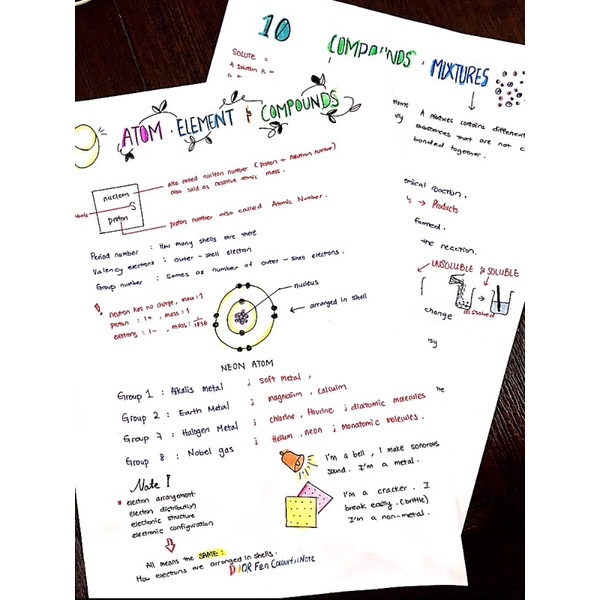 10
COMPOUNDS · MIXTURES
SOLUTE =
A mixtures contains different
substances that are not c
bonded together.
9
ATOM · ELEMENT & COMPOUNDS
nucleon
S
proton
also said as relative atomic mass.
proton number also called Atomic Number.
Period number : How many shells are there
Valency electrons : outer-shell electron
Group number : Sames as number of outer-shell electrons.
emical reaction.
→ Products
formed.
the reaction.
UNSOLUBLE SOLUBLE
dissolved
change
by
neutron has no charge, mass : 1
proton : 1+, mass : 1
electrons : 1-, mass : 1/1836
nucleus
arranged in shell
NEON ATOM
Group 1 : Alkalis metal ; soft metal,
Group 2 : Earth Metal ; magnesium, calcuim
Group 7 : Halogen Metal ; chlorine, flourine ; diatomic molecules
he
Group 8 : Nobel gas ; Helium, neon ; monatomic molecules.
I'm a bell, I make sonorous
sound. I'm a metal.
I'm a cracker. I
break easily. (brittle)
I'm a non-metal.
Note!
* electron arrangement
electron distribution
electronic structure
electronic configuration
All means the SAME:
How electrons are arranged in shells.
DIOR Fen Colourful Note